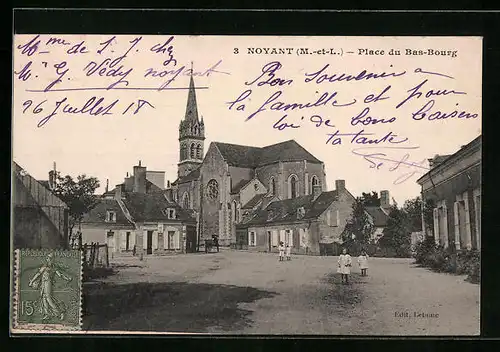 3 NOYANT (M.-et-L.) — Place du Bas-Bourg
Mme de S. J. chez
M. G. Védy noyant
26 Juillet 18
Bon Souvenir a
la famille et pour
toi de bons baisers
ta tante
Edit. Lebouc
15c